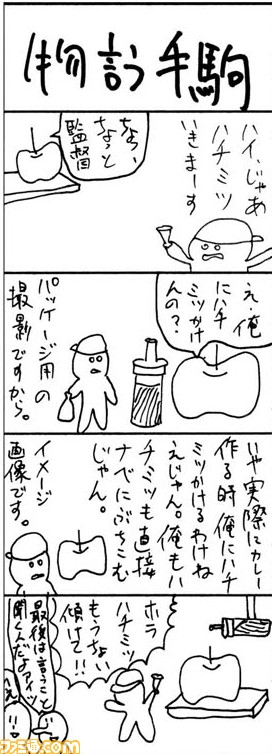 物言う手駒
ハイ、じゃあ
ハチミツ
いきまーす
ちょ、
ちょっと
監督
え、俺
にハチ
ミツかけ
んの？
パッケージ用の
撮影ですから。
いや実際にカレー
作る時俺にハチ
ミツかけるわけね
えじゃん。俺もハ
チミツも直接
ナベにぶちこむ
じゃん。
イメージ
画像です。
ホラ
ハチミツ
もうちょい
傾けて!!
最後は言うこと
聞くんだよアイツ
へぇ
ファミ通.com